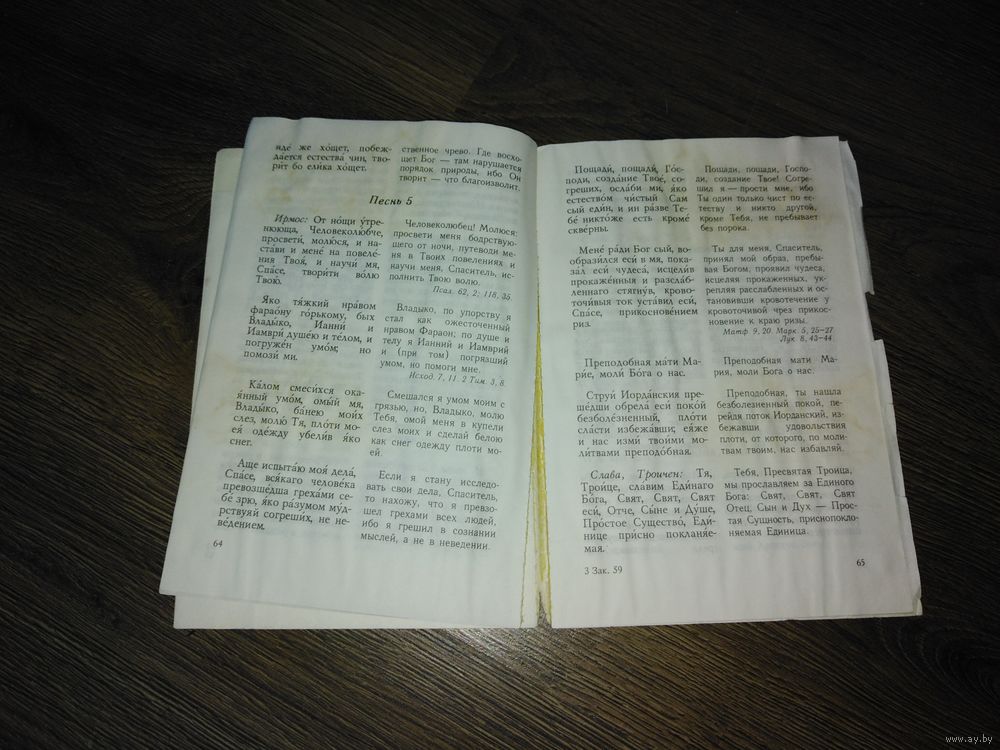 иде́ же хо́щет, побеж-
да́ется естества́ чин, тво-
ри́т бо ели́ка хо́щет.
ственное чрево. Где восхо-
щет Бог — там нарушается
порядок природы, ибо Он
творит — что благоизволит.
Песнь 5
Ирмос: От но́щи у́тре-
нююща, Человеколю́бче,
просвети́, молю́ся, и на-
ста́ви и мене́ на повеле́-
ния Твоя́, и научи́ мя,
Спа́се, твори́ти во́лю
Твою́.
Человеколюбец! Молюся:
просвети меня бодрствую-
щего от ночи, путеводи ме-
ня в Твоих повелениях и
научи меня, Спаситель, ис-
полнить Твою волю.
Псал. 62, 2; 118, 35.
Я́ко тя́жкий нра́вом
фарао́ну го́рькому, бых
Влады́ко, Ианни́ и
Иамври́ душе́ю и те́лом, и
погруже́н умо́м; но
помози́ ми.
Владыко, по упорству я
стал как ожесточенный
нравом Фараон; по душе и
телу я Ианний и Иамврий
и (при том) погрязший
умом, но помоги мне.
Исход. 7, 11. 2 Тим. 3, 8.
Ка́лом смеси́хся ока-
я́нный умо́м, омы́й мя,
Влады́ко, ба́нею мои́х
слез, молю́ Тя, пло́ти мо-
ея́ оде́жду убели́в я́ко
снег.
Смешался я умом моим с
грязью, но, Владыко, молю
Тебя, омой меня в купели
слез моих и сделай белою
как снег одежду плоти мо-
ей.
Аще испыта́ю моя́ дела́,
Спа́се, вся́каго челове́ка
превозше́дша греха́ми се-
бе́ зрю, я́ко ра́зумом му́д-
рствуяй согреши́х, не не-
ве́дением.
Если я стану исследо-
вать свои дела, Спаситель,
то нахожу, что я превзо-
шел грехами всех людей,
ибо я грешил в сознании
мыслей, а не в неведении.
64
Пощади́, пощади́, Го́с-
поди, созда́ние Твое́, со-
греших, осла́би ми, я́ко
естеством чи́стый Сам
сый еди́н, и ин ра́зве Те-
бе́ никто́же есть кроме́
скве́рны.
Пощади, пощади, Госпо-
ди, создание Твое! Согре-
шил я — прости мне, ибо
Ты один только чист по ес-
теству и никто другой,
кроме Тебя, не пребывает
без порока.
Мене́ ра́ди Бог сый, во-
образи́лся еси́ в мя, пока-
за́л еси́ чудеса́, исцели́в
прокаже́нныя и разсла́б-
леннаго стягну́в, крово-
точи́выя ток уста́вил еси́,
Спа́се, прикоснове́нием
риз.
Ты для меня, Спаситель,
принял мой образ, пребы-
вая Богом, проявил чудеса,
исцеляя прокаженных, ук-
репляя расслабленных и ос-
тановивши кровотечение у
кровоточивой чрез прикос-
новение к краю ризы.
Матф 9, 20. Марк. 5, 25–27.
Лук 8, 43–44.
Преподобная ма́ти Ма-
ри́е, моли́ Бо́га о нас.
Преподобная мати Ма-
рия, моли Бога о нас.
Струи́ Иорда́нския пре-
ше́дши обрела́ еси́ поко́й
безболе́зненный, пло́ти
сла́сти избежа́вши; ея́же
и нас изми́ твои́ми мо-
ли́твами преподо́бная.
Преподобная, ты нашла
безболезненный покой, пе-
рейдя поток Иорданский, из-
бежавши удовольствия
плоти, от которого, по моли-
твам твоим, нас избавляй.
Сла́ва, Трои́чен: Тя,
Тро́ице, сла́вим Еди́наго
Бо́га, Свят, Свят, Свят
еси́, О́тче, Сы́не и Ду́ше,
Про́стое Существо́, Еди́-
нице при́сно покланя́е-
мая.
Тебя, Пресвятая Троица,
мы прославляем за Единого
Бога: Свят, Свят, Свят
Отец, Сын и Дух — Прос-
тая Сущность, приснопокло-
няемая Единица.
3 Зак. 59
65
www.ay.by